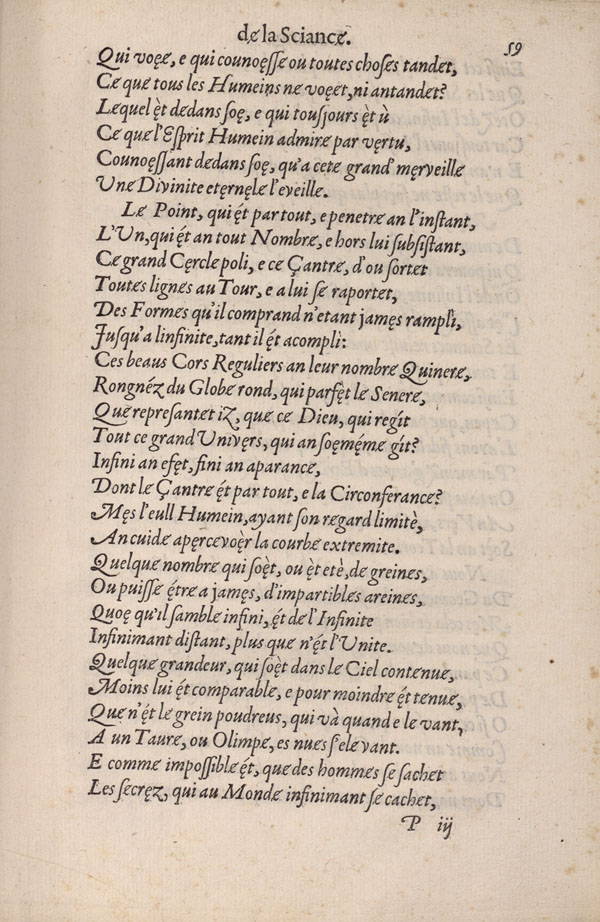 de la Sciance̜.
59
Qui voę́e, e qui counoęſſe ou toutes choſes tandet,
Ce que tous les Humeins ne voęet, ni antandet?
Lequel èt dedans ſoę, e qui tousjours èt ù
Ce que l'Eſprit Humein admire par vęrtu,
Counoęſſant dedans ſoę, qu'a cete grand' męrveille
Une Divinite etęrnęle l'eveille.
Le Point, qui ę́t par tout, e penetre an l'inſtant,
L'Un, qui ę́t an tout Nombre, e hors lui ſubſiſtant,
Ce grand Cęrcle poli, e ce Çantre, d'ou ſortet
Toutes lignes au Tour, e a lui se raportet,
Des Formes qu'il comprand n'etant jamęs rampli,
Juſqu'a linfinite, tant il ę́t acompli:
Ces beaus Cors Reguliers an leur nombre Quinere,
Rongnéz du Globe rond, qui parfęt le Senere,
Que repreſantet iz, que ce Dieu, qui regit
Tout ce grand Univęrs, qui an ſoęméme gít?
Infini an efęt, fini an aparance,
Dont le Çantre ę́t par tout, e la Circonferance?
Męs l'eull Humein, ayant ſon regard limitè,
An cuide apęrcevoęr la courbe extremite.
Quelque nombre qui ſoęt, ou ę̀t etè, de greines,
Ou puiſſe ę́tre a jamęs, d'impartibles areines,
Quoę qu'il ſamble infini, ę́t de l'Infinite
Infinimant diſtant, plus que n'ę́t l'Unite.
Quelque grandeur, qui ſoę̀t dans le Ciel contenue,
Moins lui ę́t comparable, e pour moindre ę́t tenue,
Que n'ę́t le grein poudreus, qui và quand e le vant,
A un Taure, ou Olimpe, es nues ſ'elevant.
E comme impoſſible ę́t, que des hommes ſe ſachet
Les ſecręz, qui au Monde infinimant ſe cachet,
P iij